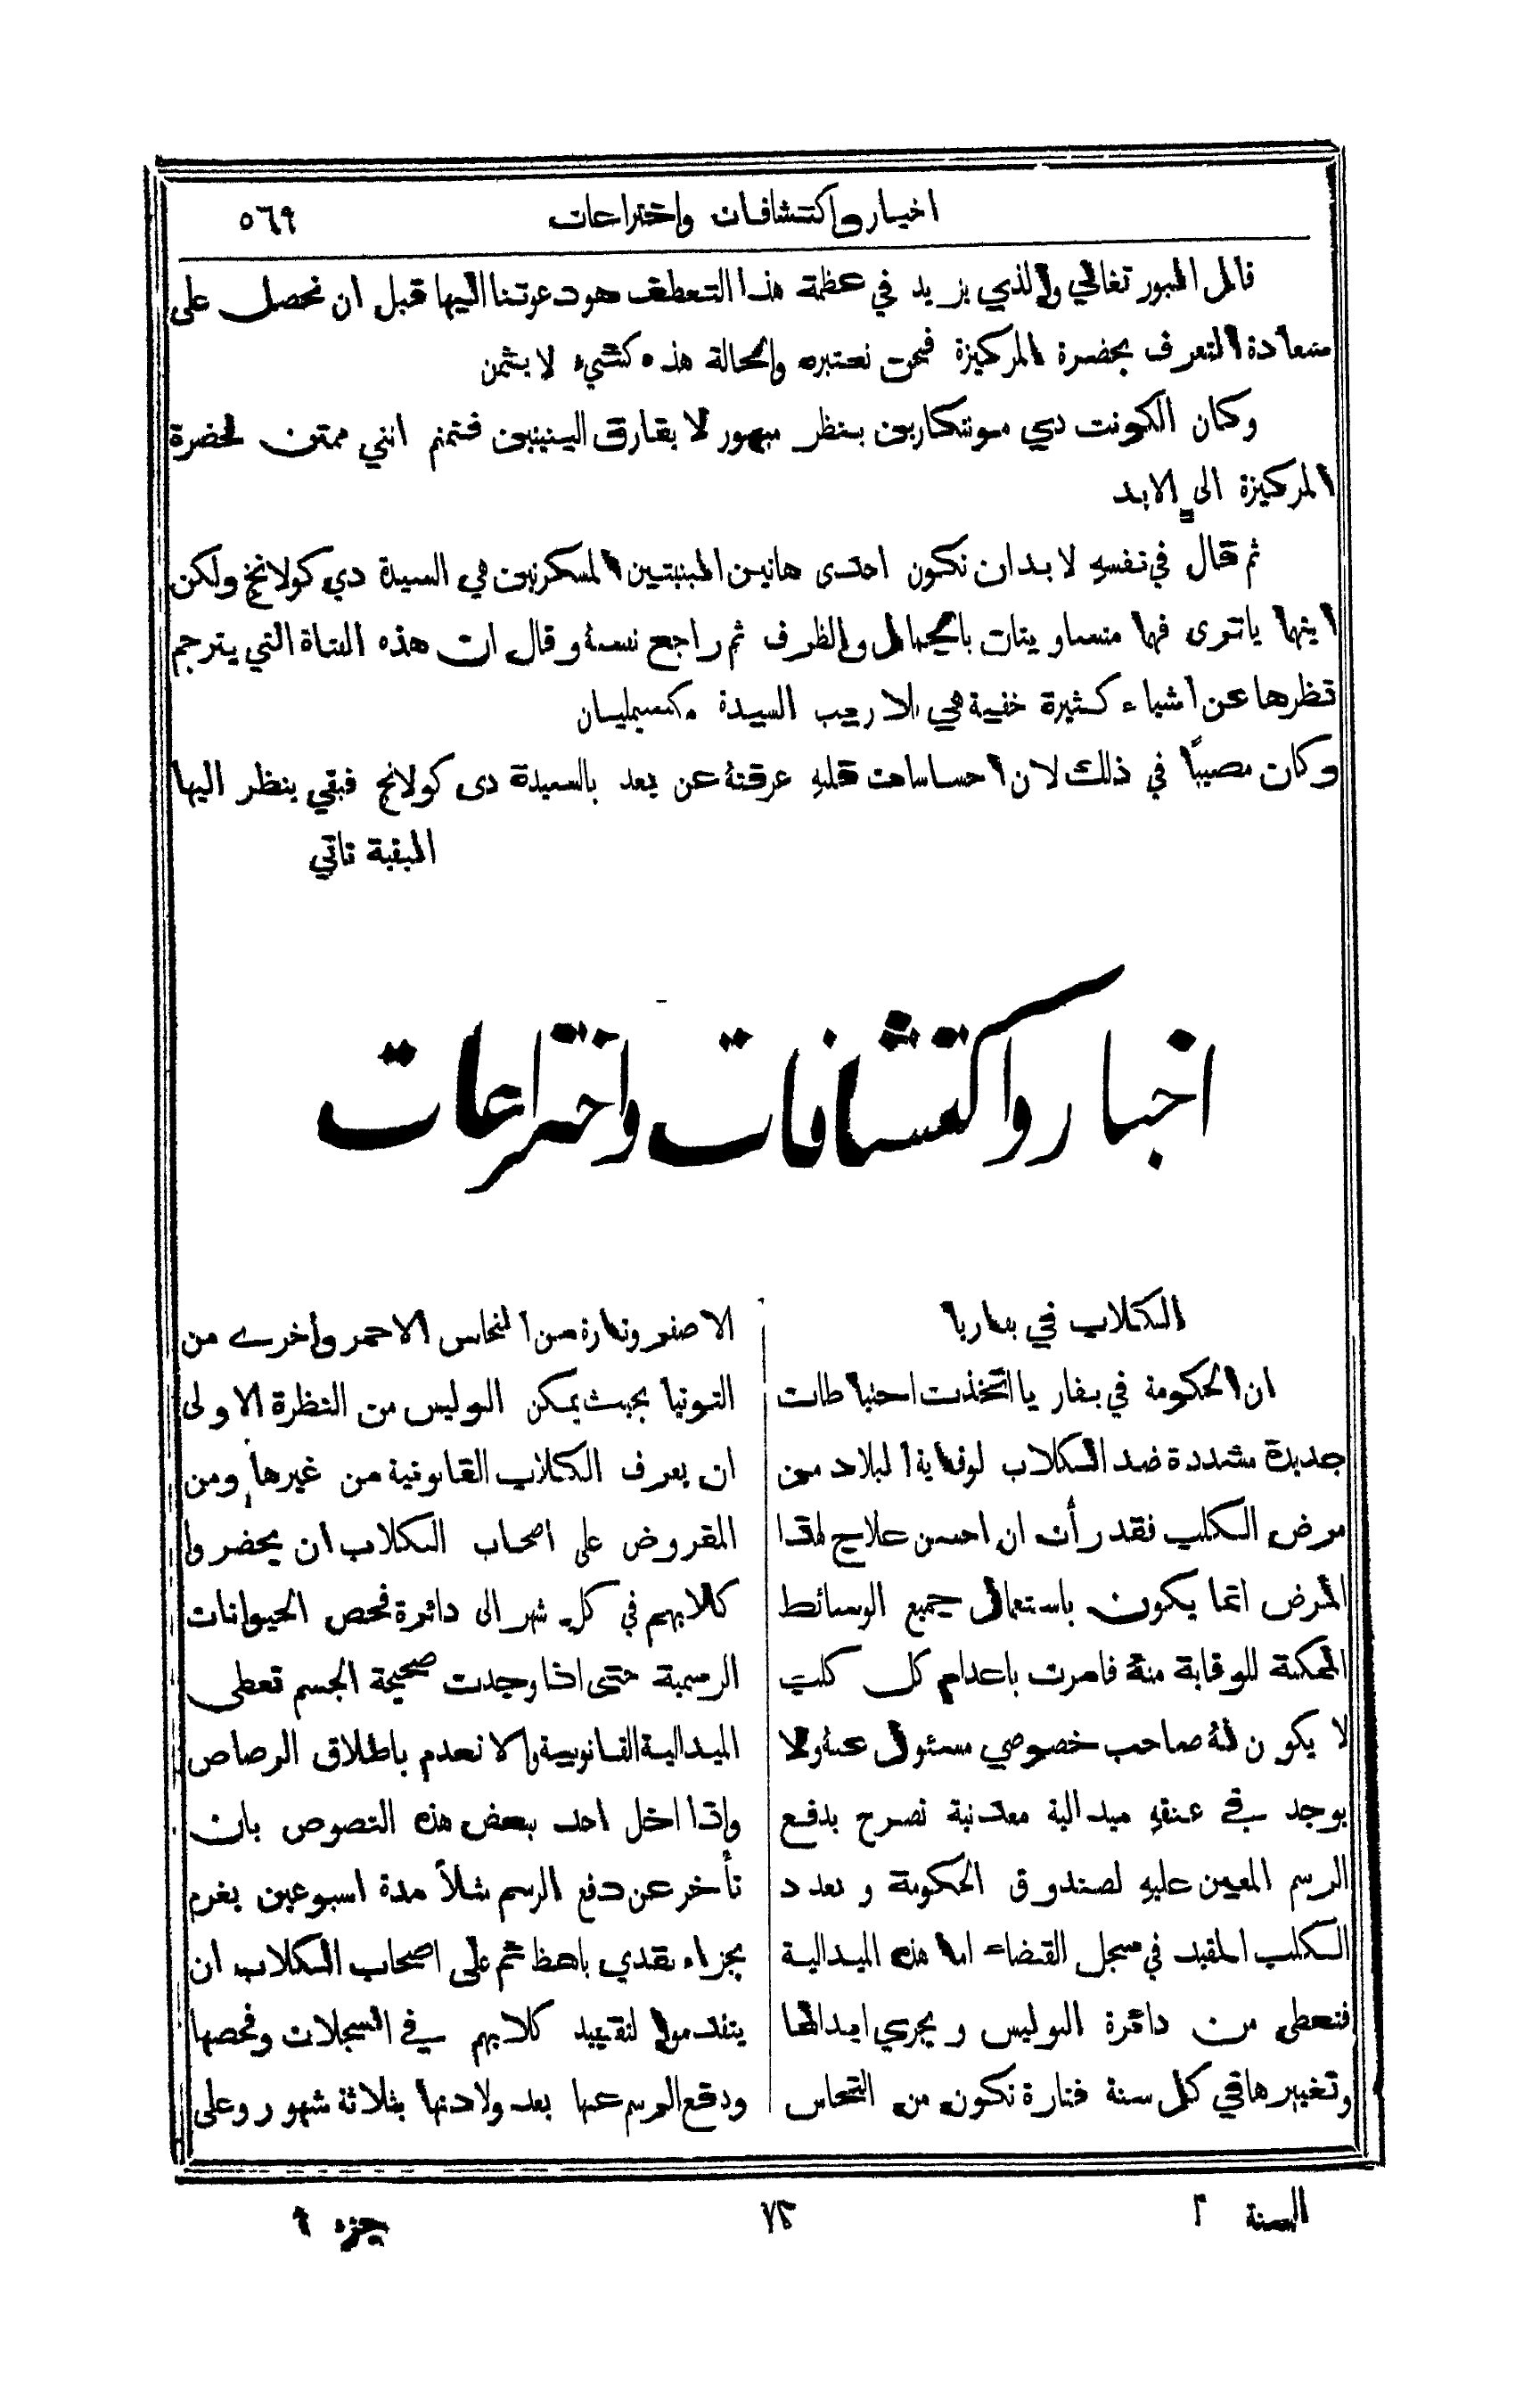 اخبار واكتشافات واختراعات ٥٦٩
قال المسيو رتغالي والذي يزيد في عظمة هذا التعطف هو دعوتنا اليها قبل ان نحصل على
سعادة التعرف بحضرة المركيزة فنحن نعتبره والحالة هذه كشيء لا يثمن
وكان الكونت دي مونتكاربن ينظر مبهور لا يفارق البنيتين فتمتم انني ممتن لحضرة
المركيزة الى الابد
ثم قال في نفسهِ لا بد ان تكون احدى هاتين البنيتين المسكرتين هي السيدة دي كولانج ولكن
ايتها يا ترى فهما متساويتان بالجمال والظرف ثم راجع نفسهُ وقال ان هذه الفتاة التي يترجم
نظرها عن اشياء كثيرة خفية هي بلا ريب السيدة مكسيمليان
وكان مصيباً في ذلك لان احساسات قلبهِ عرفتهُ عن بعد بالسيدة دي كولانج فبقي ينظر اليها
البقية تاتي
اخبار واكتشافات واختراعات
الكلاب في بفاريا
ان الحكومة في بفاريا اتخذت احتياطات
جديدة مشددة ضد الكلاب لوقاية البلاد من
مرض الكلب فقد رأت ان احسن علاج لهذا
المرض انما يكون باستعمال جميع الوسائط
الممكنة للوقاية منهُ فامرت باعدام كل كلب
لا يكون لهُ صاحب خصوصي مسئول عنهُ ولا
يوجد في عنقهِ ميدالية معدنية تصرح بدفع
الرسم المعين عليهِ لصندوق الحكومة وبعدد
الكلب المقيد في سجل القضاء اما هذه الميدالية
فتعطى من دائرة البوليس ويجري ابدالها
وتغييرها في كل سنة فتارة تكون من النحاس
الاصفر وتارة من النحاس الاحمر واخرى من
التوتيا بحيث يمكن البوليس من النظرة الاولى
ان يعرف الكلاب القانونية من غيرها ومن
المفروض على اصحاب الكلاب ان يحضروا
كلابهم في كل شهر الى دائرة فحص الحيوانات
الرسمية حتى اذا وجدت صحيحة الجسم تعطى
الميدالية القانونية والا تعدم باطلاق الرصاص
واذا اخل احد ببعض هذه النصوص بان
تأخر عن دفع الرسم مثلاً مدة اسبوعين يغرم
بجزاء نقدي باهظ ثم على اصحاب الكلاب ان
يتقدموا لتقييد كلابهم في السجلات وفحصها
ودفع الرسم عنها بعد ولادتها بثلاثة شهور وعلى
السنة ٢ ٧٢ جزء ٩